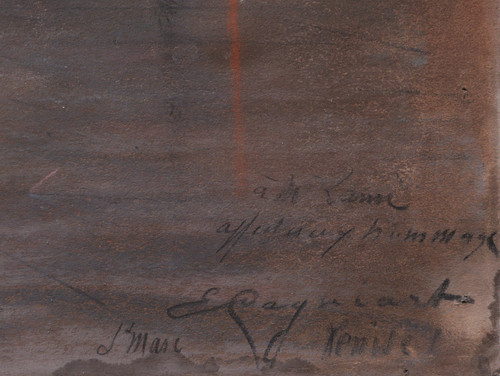 à Mr
affectueux hommage
E Cagniart
St Marc Venise